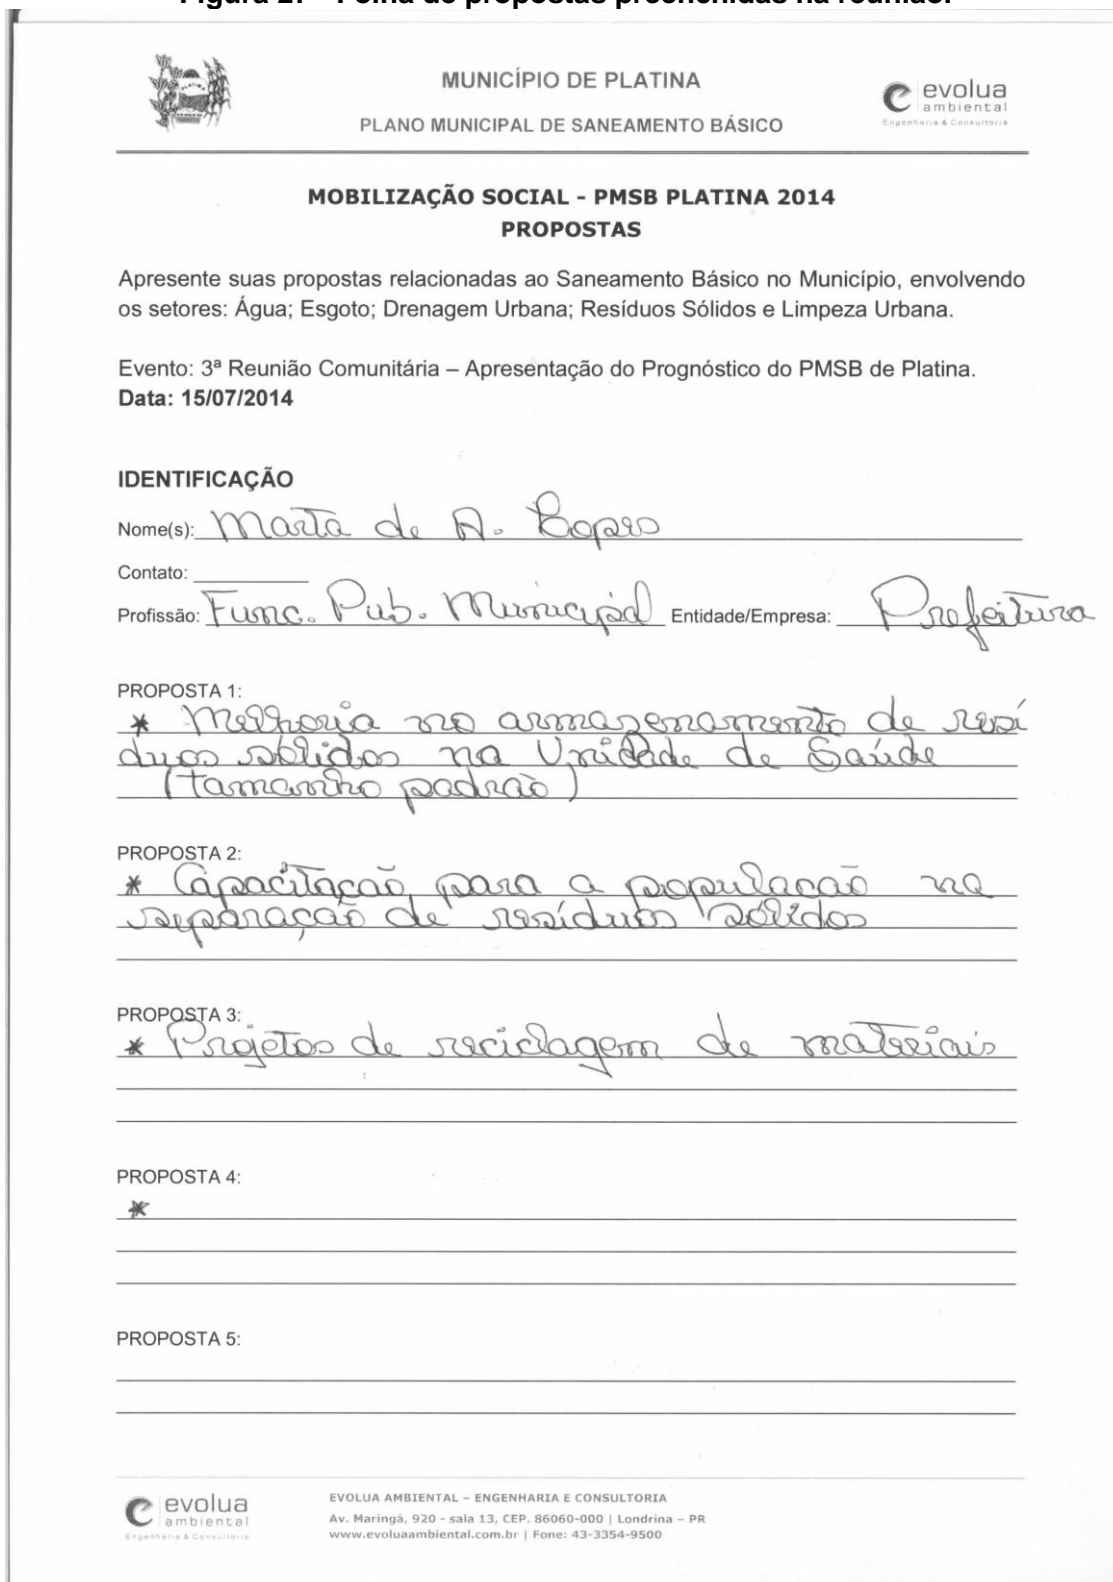 MUNICÍPIO DE PLATINA
PLANO MUNICIPAL DE SANEAMENTO BÁSICO
evolua
ambiental
Engenharia & Consultoria
MOBILIZAÇÃO SOCIAL - PMSB PLATINA 2014
PROPOSTAS
Apresente suas propostas relacionadas ao Saneamento Básico no Município, envolvendo
os setores: Água; Esgoto; Drenagem Urbana; Resíduos Sólidos e Limpeza Urbana.
Evento: 3ª Reunião Comunitária – Apresentação do Prognóstico do PMSB de Platina.
Data: 15/07/2014
IDENTIFICAÇÃO
Nome(s): Marta de A. Lopes
Contato:
Profissão: Func. Pub. Municipal Entidade/Empresa: Prefeitura
PROPOSTA 1:
* Melhoria no armazenamento de resí
duos sólidos na Unidade de Saúde
(tamanho padrão)
PROPOSTA 2:
* Capacitação para a população na
separação de resíduos sólidos
PROPOSTA 3:
* Projetos de reciclagem de materiais
PROPOSTA 4:
*
PROPOSTA 5:
evolua
ambiental
Engenharia & Consultoria
EVOLUA AMBIENTAL – ENGENHARIA E CONSULTORIA
Av. Maringá, 920 - sala 13, CEP. 86060-000 | Londrina – PR
www.evoluaambiental.com.br | Fone: 43-3354-9500